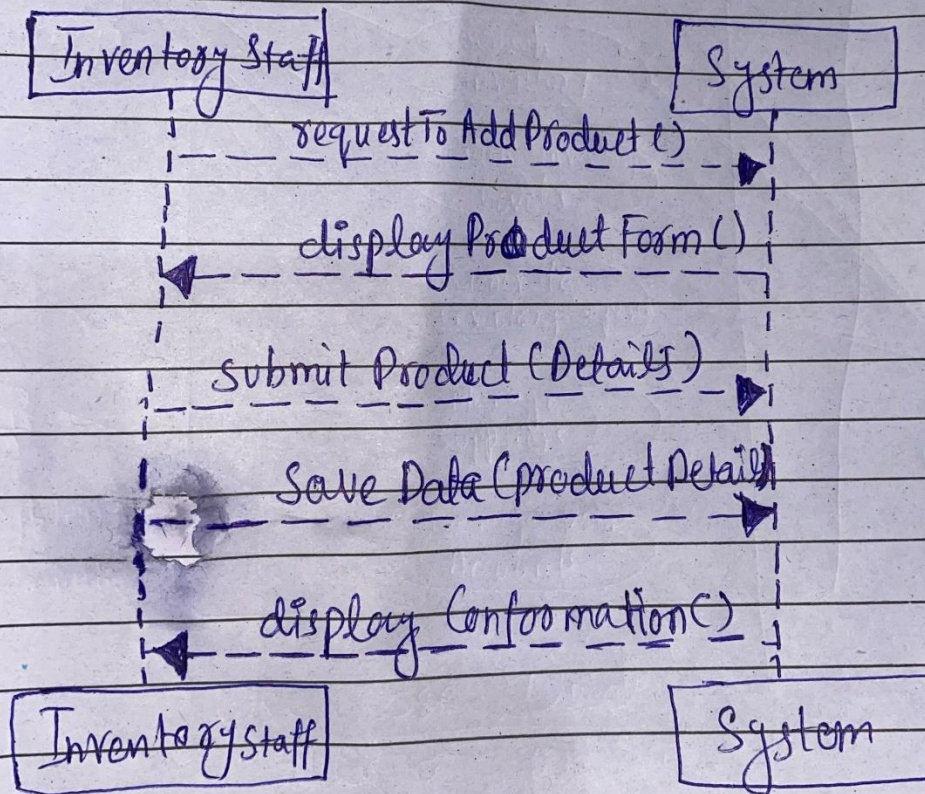 Inventory Staff
System
requestToAddProduct()
displayProductForm()
submit Product (Details)
Save Data (product Details)
display Conformation()
Inventory Staff
System